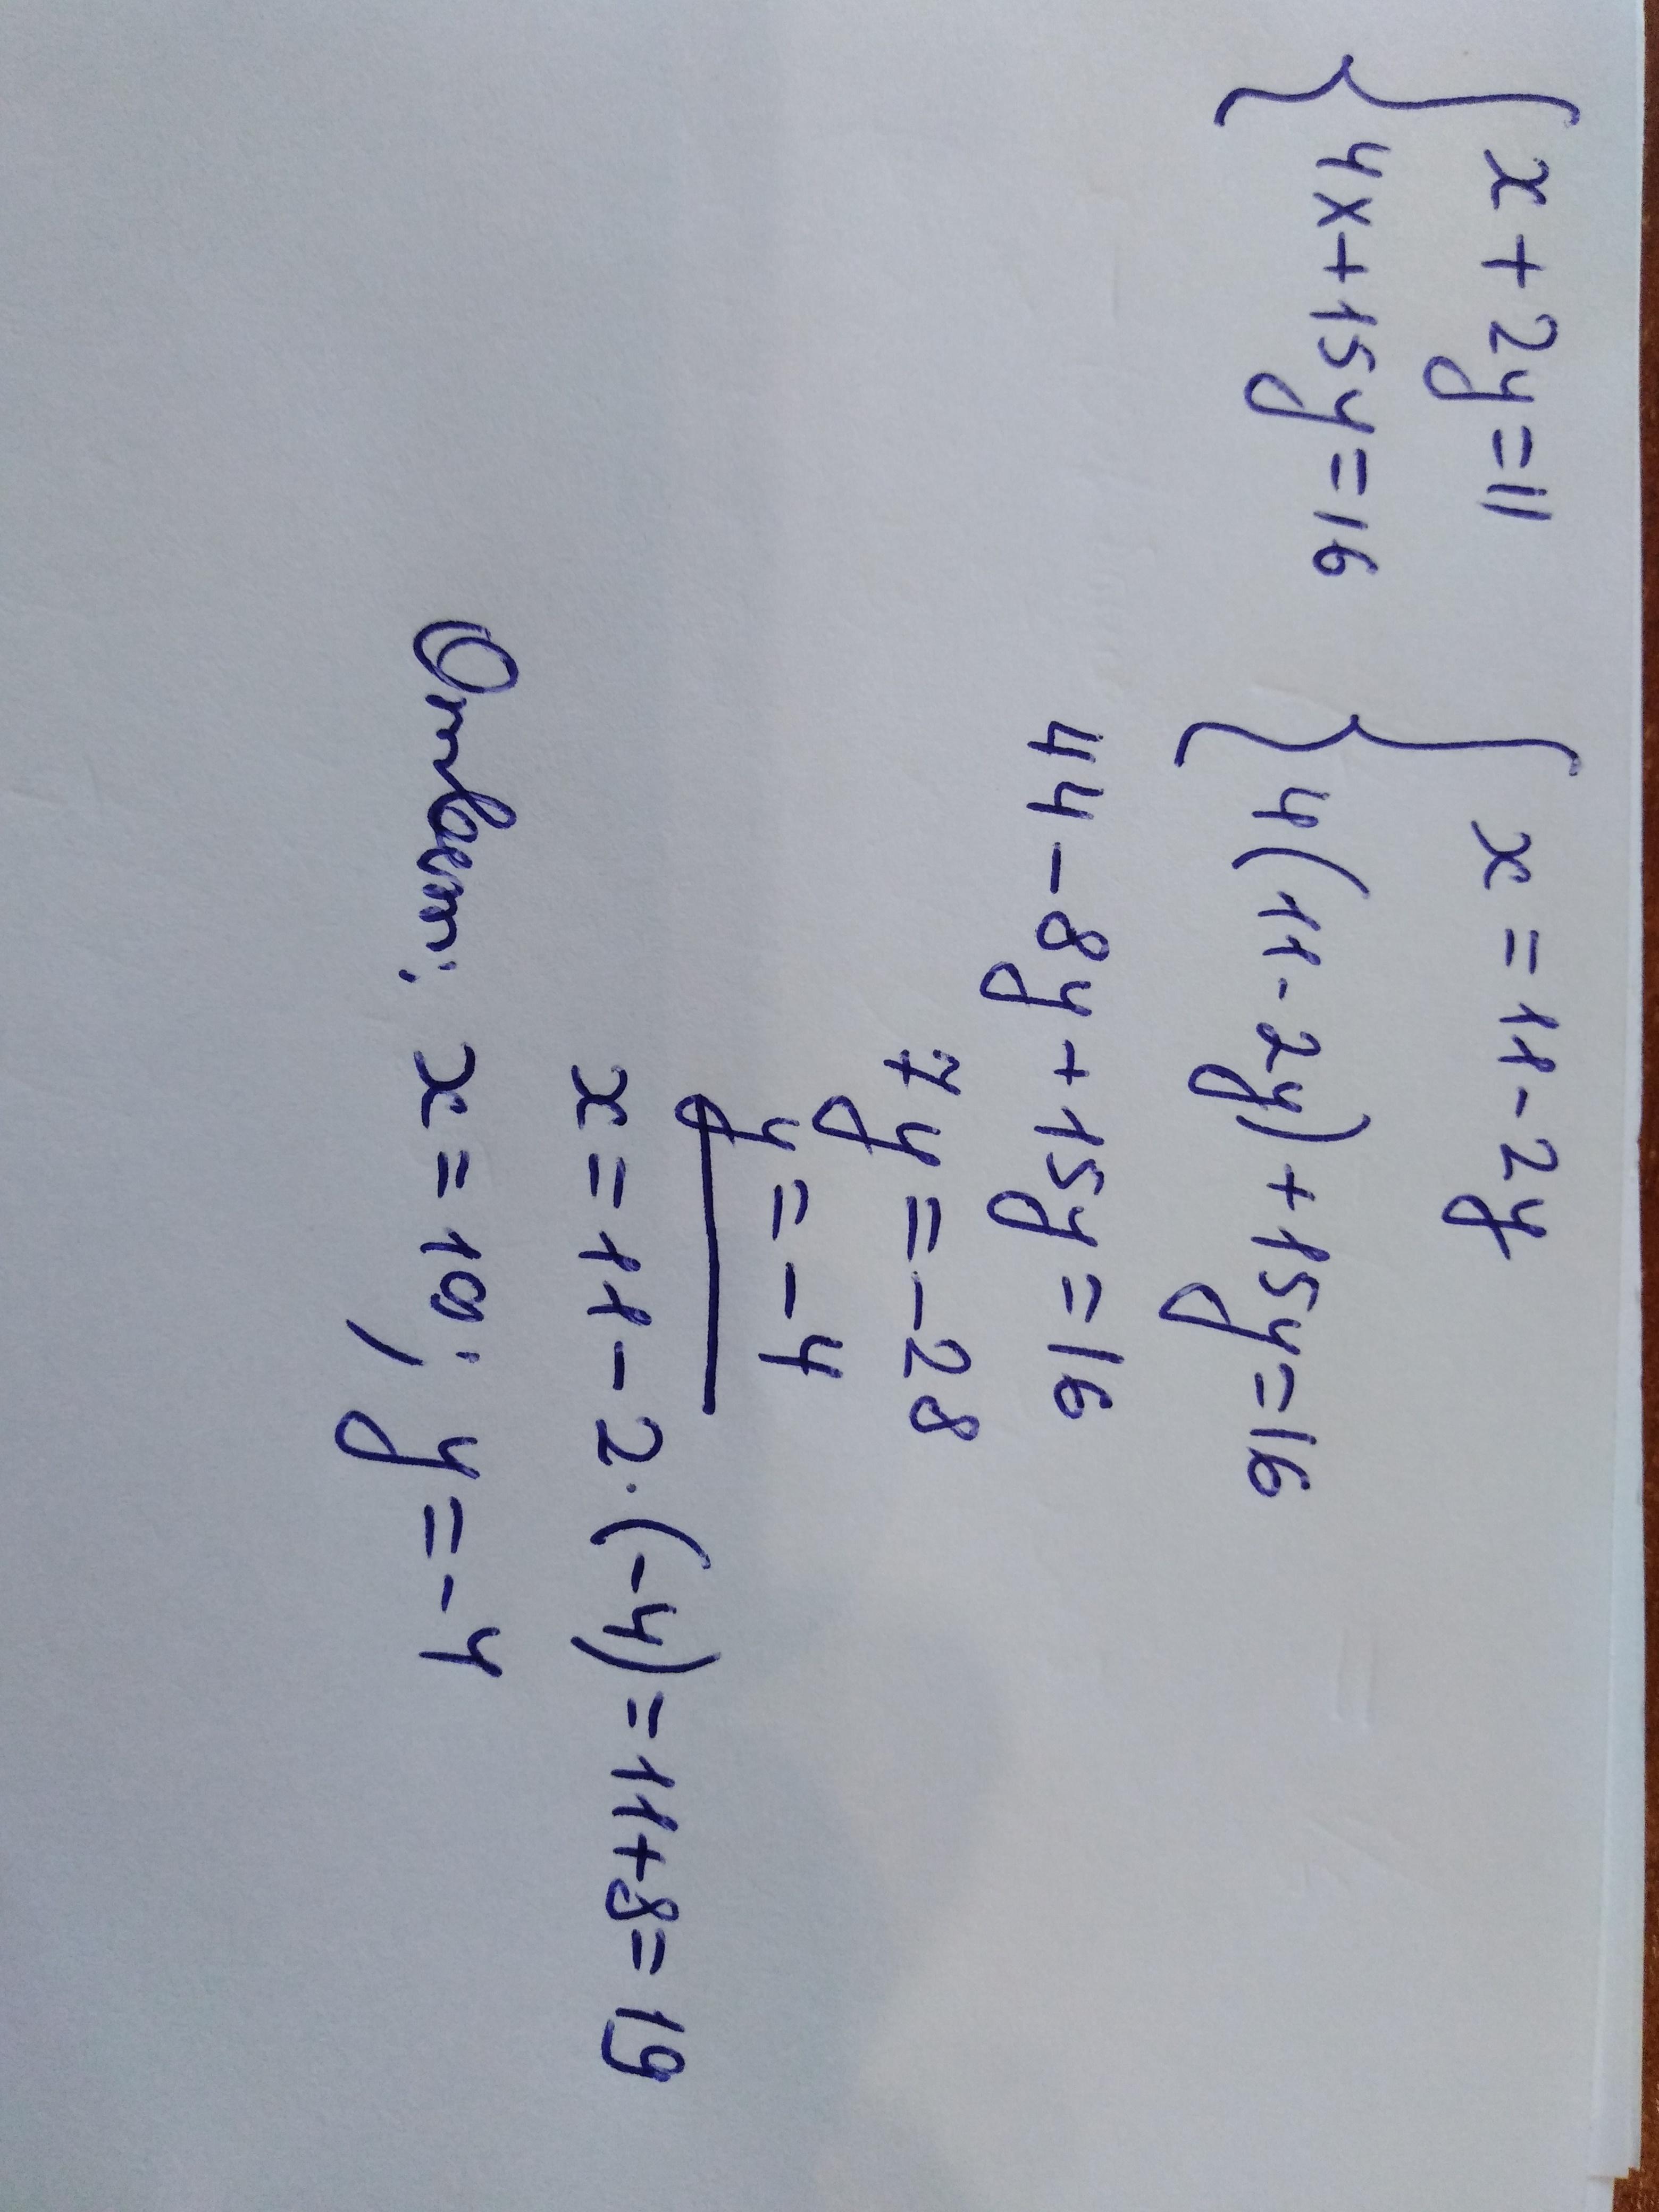 { x + 2y = 11
{ 4x + 15y = 16
{ x = 11 - 2y
{ 4(11 - 2y) + 15y = 16
44 - 8y + 15y = 16
7y = -28
y = -4
x = 11 - 2·(-4) = 11 + 8 = 19
Ответ: x = 19; y = -4